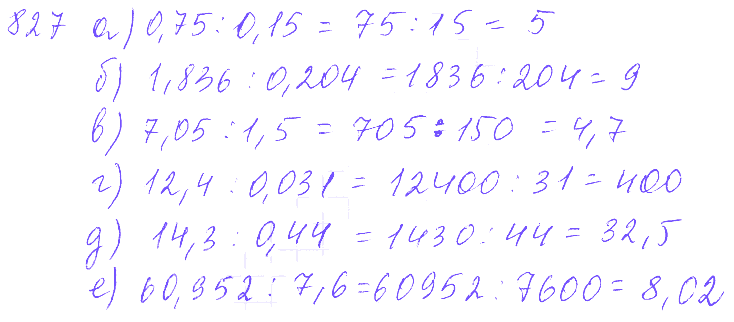 827 а) 0,75 : 0,15 = 75 : 15 = 5
б) 1,836 : 0,204 = 1836 : 204 = 9
в) 7,05 : 1,5 = 705 : 150 = 4,7
г) 12,4 : 0,031 = 12400 : 31 = 400
д) 14,3 : 0,44 = 1430 : 44 = 32,5
е) 60,952 : 7,6 = 60952 : 7600 = 8,02